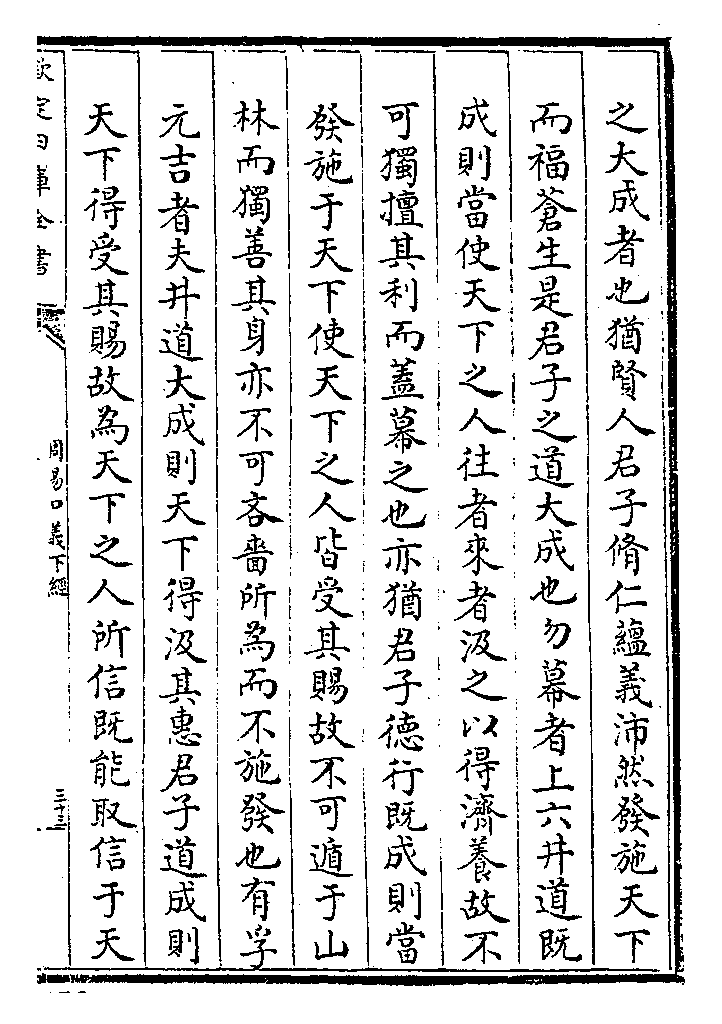 之大成者也猶賢人君子脩仁蘊義沛然發施天下
而福蒼生是君子之道大成也勿幕者上六井道既
成則當使天下之人往者來者汲之以得濟養故不
可獨擅其利而蓋幕之也亦猶君子德行既成則當
發施于天下使天下之人皆受其賜故不可遁于山
林而獨善其身亦不可吝嗇所為而不施發也有孚
元吉者夫井道大成則天下得汲其惠君子道成則
天下得受其賜故為天下之人所信既能取信于天
欽定四庫全書
周易口義下經
三十三